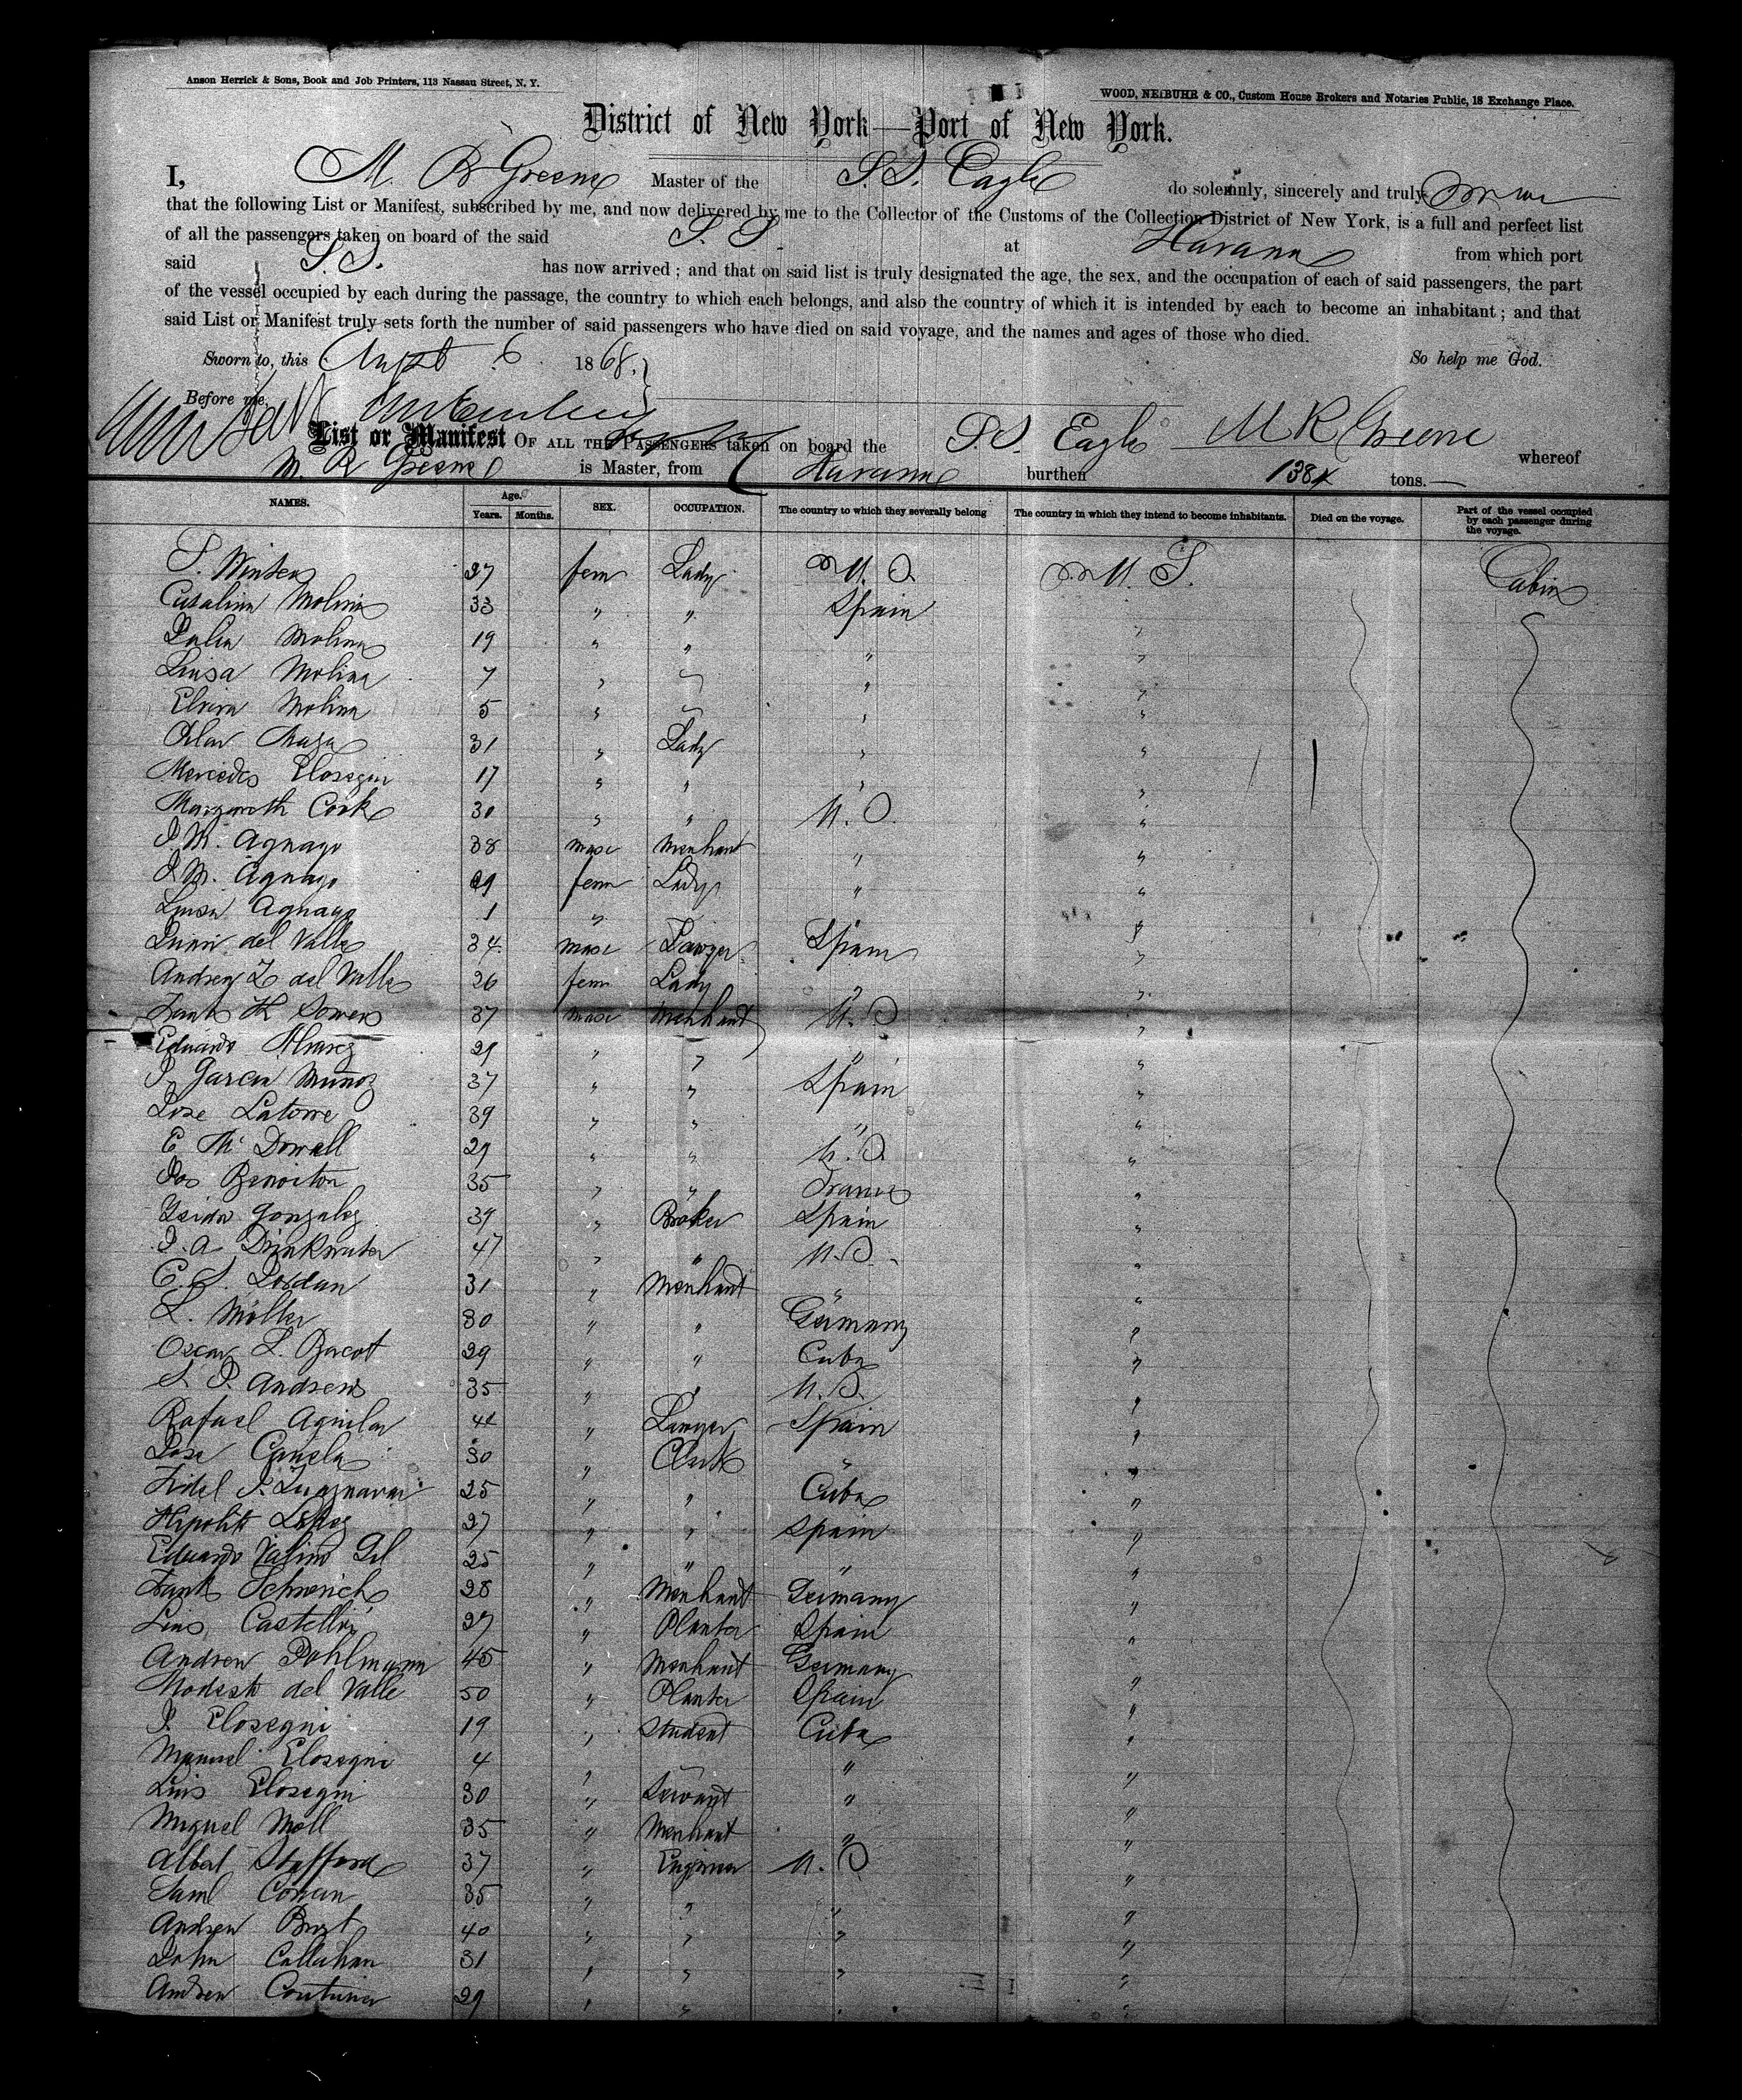 Anson Herrick & Sons, Book and Job Printers, 113 Nassau Street, N. Y.
WOOD, NEIBUHR & CO., Custom House Brokers and Notaries Public, 18 Exchange Place.
District of New York—Port of New York.
I, M. R Greene Master of the S.S. Eagle do solemnly, sincerely and truly swear
that the following List or Manifest, subscribed by me, and now delivered by me to the Collector of the Customs of the Collection District of New York, is a full and perfect list
of all the passengers taken on board of the said S. S. at Havana from which port
said S.S. has now arrived ; and that on said list is truly designated the age, the sex, and the occupation of each of said passengers, the part
of the vessel occupied by each during the passage, the country to which each belongs, and also the country of which it is intended by each to become an inhabitant ; and that
said List or Manifest truly sets forth the number of said passengers who have died on said voyage, and the names and ages of those who died.
Sworn to, this Augst 6 1868. So help me God.
Before me,
M R Greene
List or Manifest OF ALL THE PASSENGERS taken on board the S.S. Eagle whereof
M. R Greene is Master, from Havana burthen 1384 tons.
NAMES. Age. Years. Months. SEX. OCCUPATION. The country to which they severally belong The country in which they intend to become inhabitants. Died on the voyage. Part of the vessel occupied by each passenger during the voyage.
S. Winter 27 fem Lady U. S. U S. Cabin
Catalina Molina 33 " " Spain
Molina 19 " " " "
Luisa Molina 7 " " "
Elvira Molina 5 " " "
Maza 31 " Lady " "
Mercedes Elosegui 17 " " " "
Margareth Cook 30 " " U. S. "
J. M. Aguayo 38 masc Merchant " "
J. M. Aguayo 29 fem Lady " "
Luisa Aguayo 1 " "
del Valle 34 masc Lawyer Spain "
Z del Valle 26 fem Lady " "
Frank H Somers 37 masc Merchant U. S "
Eduardo Alvarez 29 " " " "
J. Garcia Munoz 37 " " Spain "
Jose Latorre 39 " " " "
E Mc Dowell 29 " " U. S. "
Jos Benoiton 35 " " France "
Isidro Gonzalez 39 " Broker Spain "
J. A Drinkwater 47 " " U. S.
E. S. Jordan 31 " Merchant " "
L. Möller 30 " " Germany "
Oscar L. Bacot 29 " " Cuba "
S. P. Andrews 35 " " U. S. "
Rafael Aguilar 44 " Lawyer Spain "
Jose 30 " Clerk " "
Fidel 25 " " Cuba "
Hipolito Lopez 27 " " Spain "
Eduardo Valino Gil 25 " " " "
Frank 28 " Merchant Germany "
Luis Castellvi 27 " Planter Spain "
Andrew Pohlmann 45 " Merchant Germany "
Modesto del Valle 50 " Planter Spain "
J. Elosegui 19 " Student Cuba "
Manuel Elosegui 4 " " "
Luis Elosegui 30 " Servant " "
Miguel Moll 35 " Merchant " "
Albert Stafford 37 " Engineer U. S "
Saml 35 " " " "
Andrew 40 " " " "
John Callahan 31 " " " "
Andrew 29 " " " "